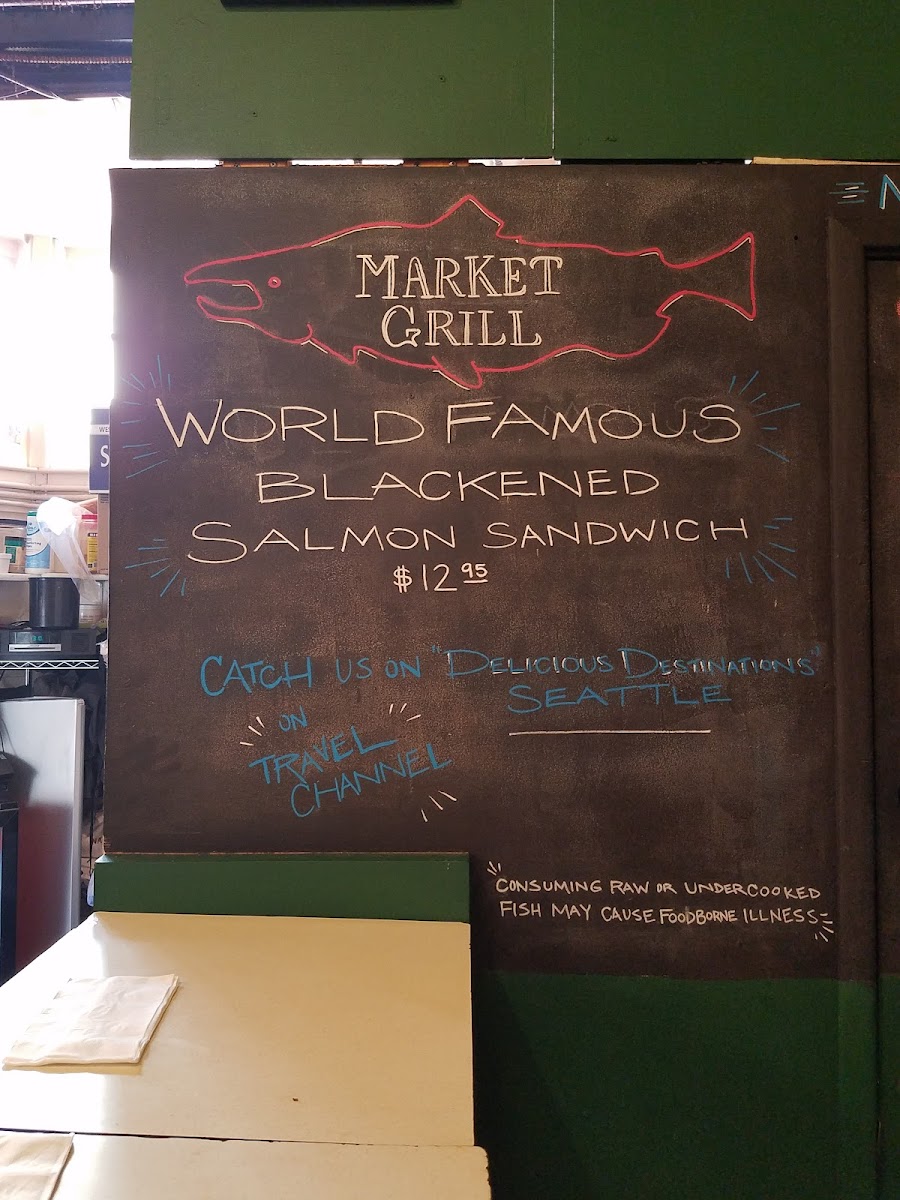 MARKET
GRILL
WORLD FAMOUS
BLACKENED
SALMON SANDWICH
$12 95
CATCH US ON "DELICIOUS DESTINATIONS"
SEATTLE
ON
TRAVEL
CHANNEL
"CONSUMING RAW OR UNDERCOOKED
FISH MAY CAUSE FOODBORNE ILLNESS